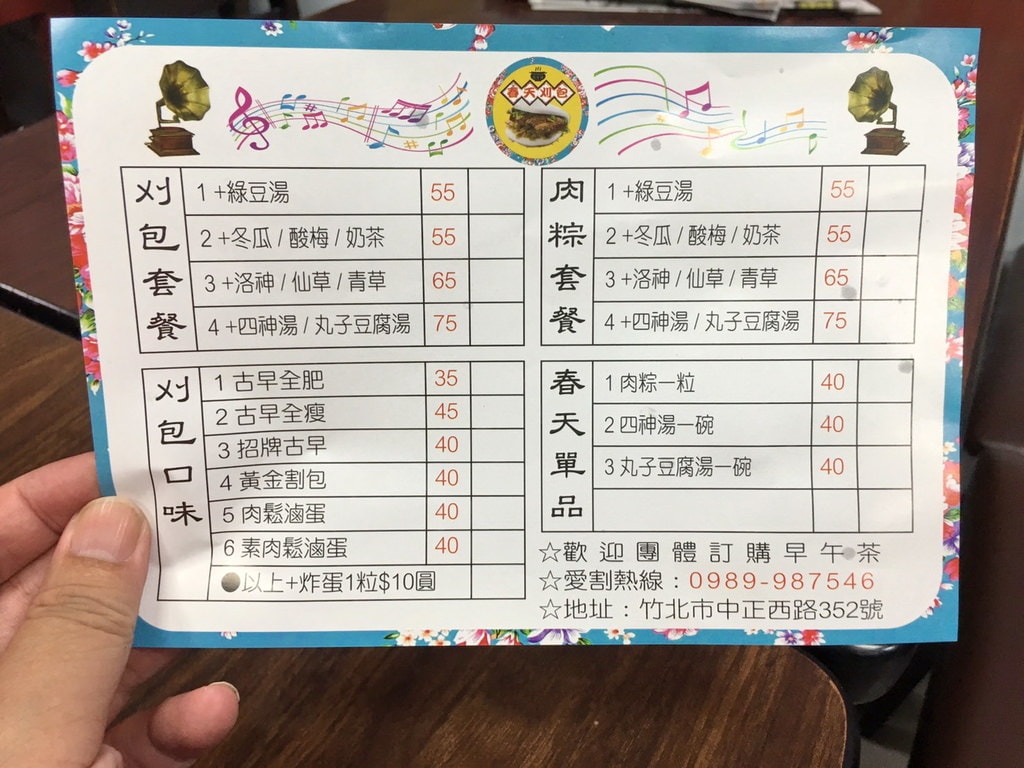 春天刈包
刈包套餐
1+綠豆湯 55
2+冬瓜/酸梅/奶茶 55
3+洛神/仙草/青草 65
4+四神湯/丸子豆腐湯 75
肉粽套餐
1+綠豆湯 55
2+冬瓜/酸梅/奶茶 55
3+洛神/仙草/青草 65
4+四神湯/丸子豆腐湯 75
刈包口味
1 古早全肥 35
2 古早全瘦 45
3 招牌古早 40
4 黃金割包 40
5 肉鬆滷蛋 40
6 素肉鬆滷蛋 40
●以上+炸蛋1粒$10圓
春天單品
1 肉粽一粒 40
2 四神湯一碗 40
3 丸子豆腐湯一碗 40
☆歡迎團體訂購早午茶
☆愛割熱線：0989-987546
☆地址：竹北市中正西路352號